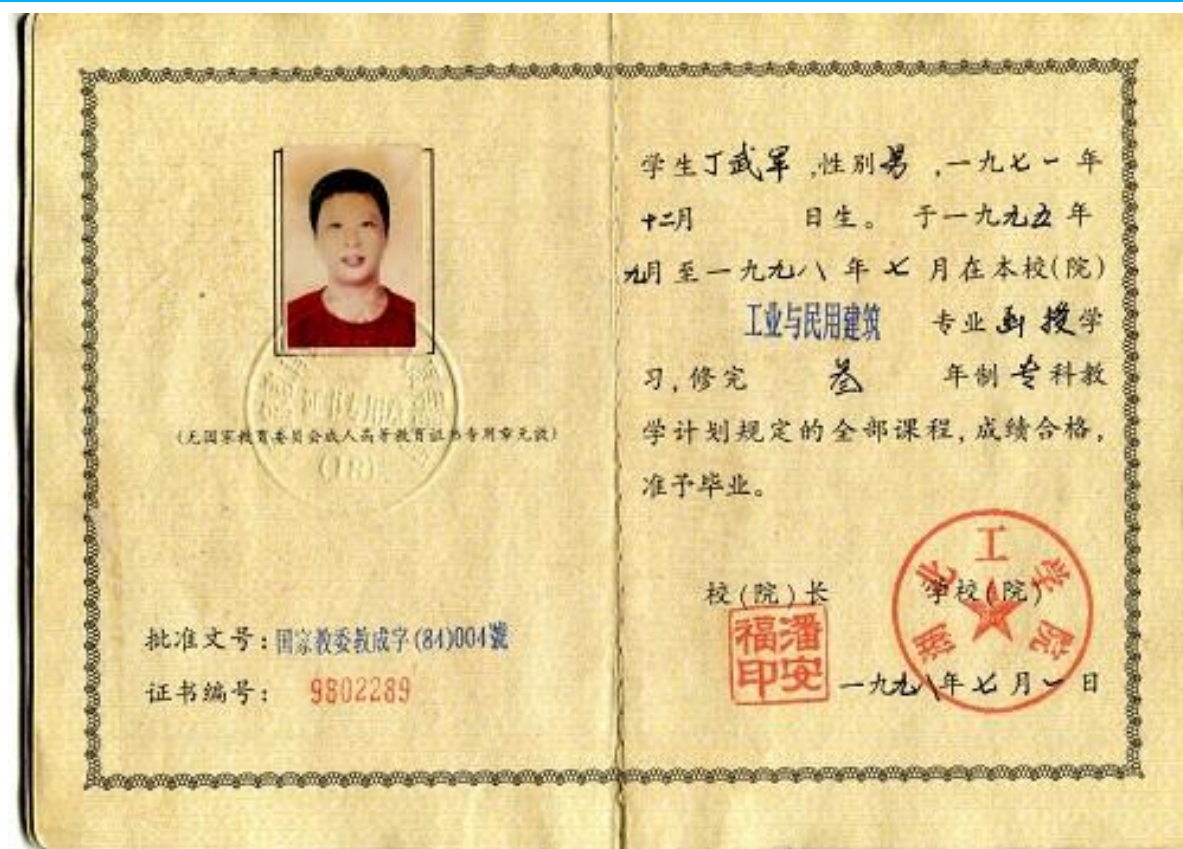 (无国家教育委员会成人高等教育证书专用章无效)
批准文号:国家教委教成字(84)004號
证书编号: 9802289
学生丁武军,性别男,一九七一年
十二月 日生。于一九九五年
九月至一九九八年七月在本校(院)
工业与民用建筑 专业函授学
习,修完 叁 年制专科教
学计划规定的全部课程,成绩合格,
准予毕业。
校(院)长 学校(院)
潘安福印
湖北工学院
一九九八年七月一日